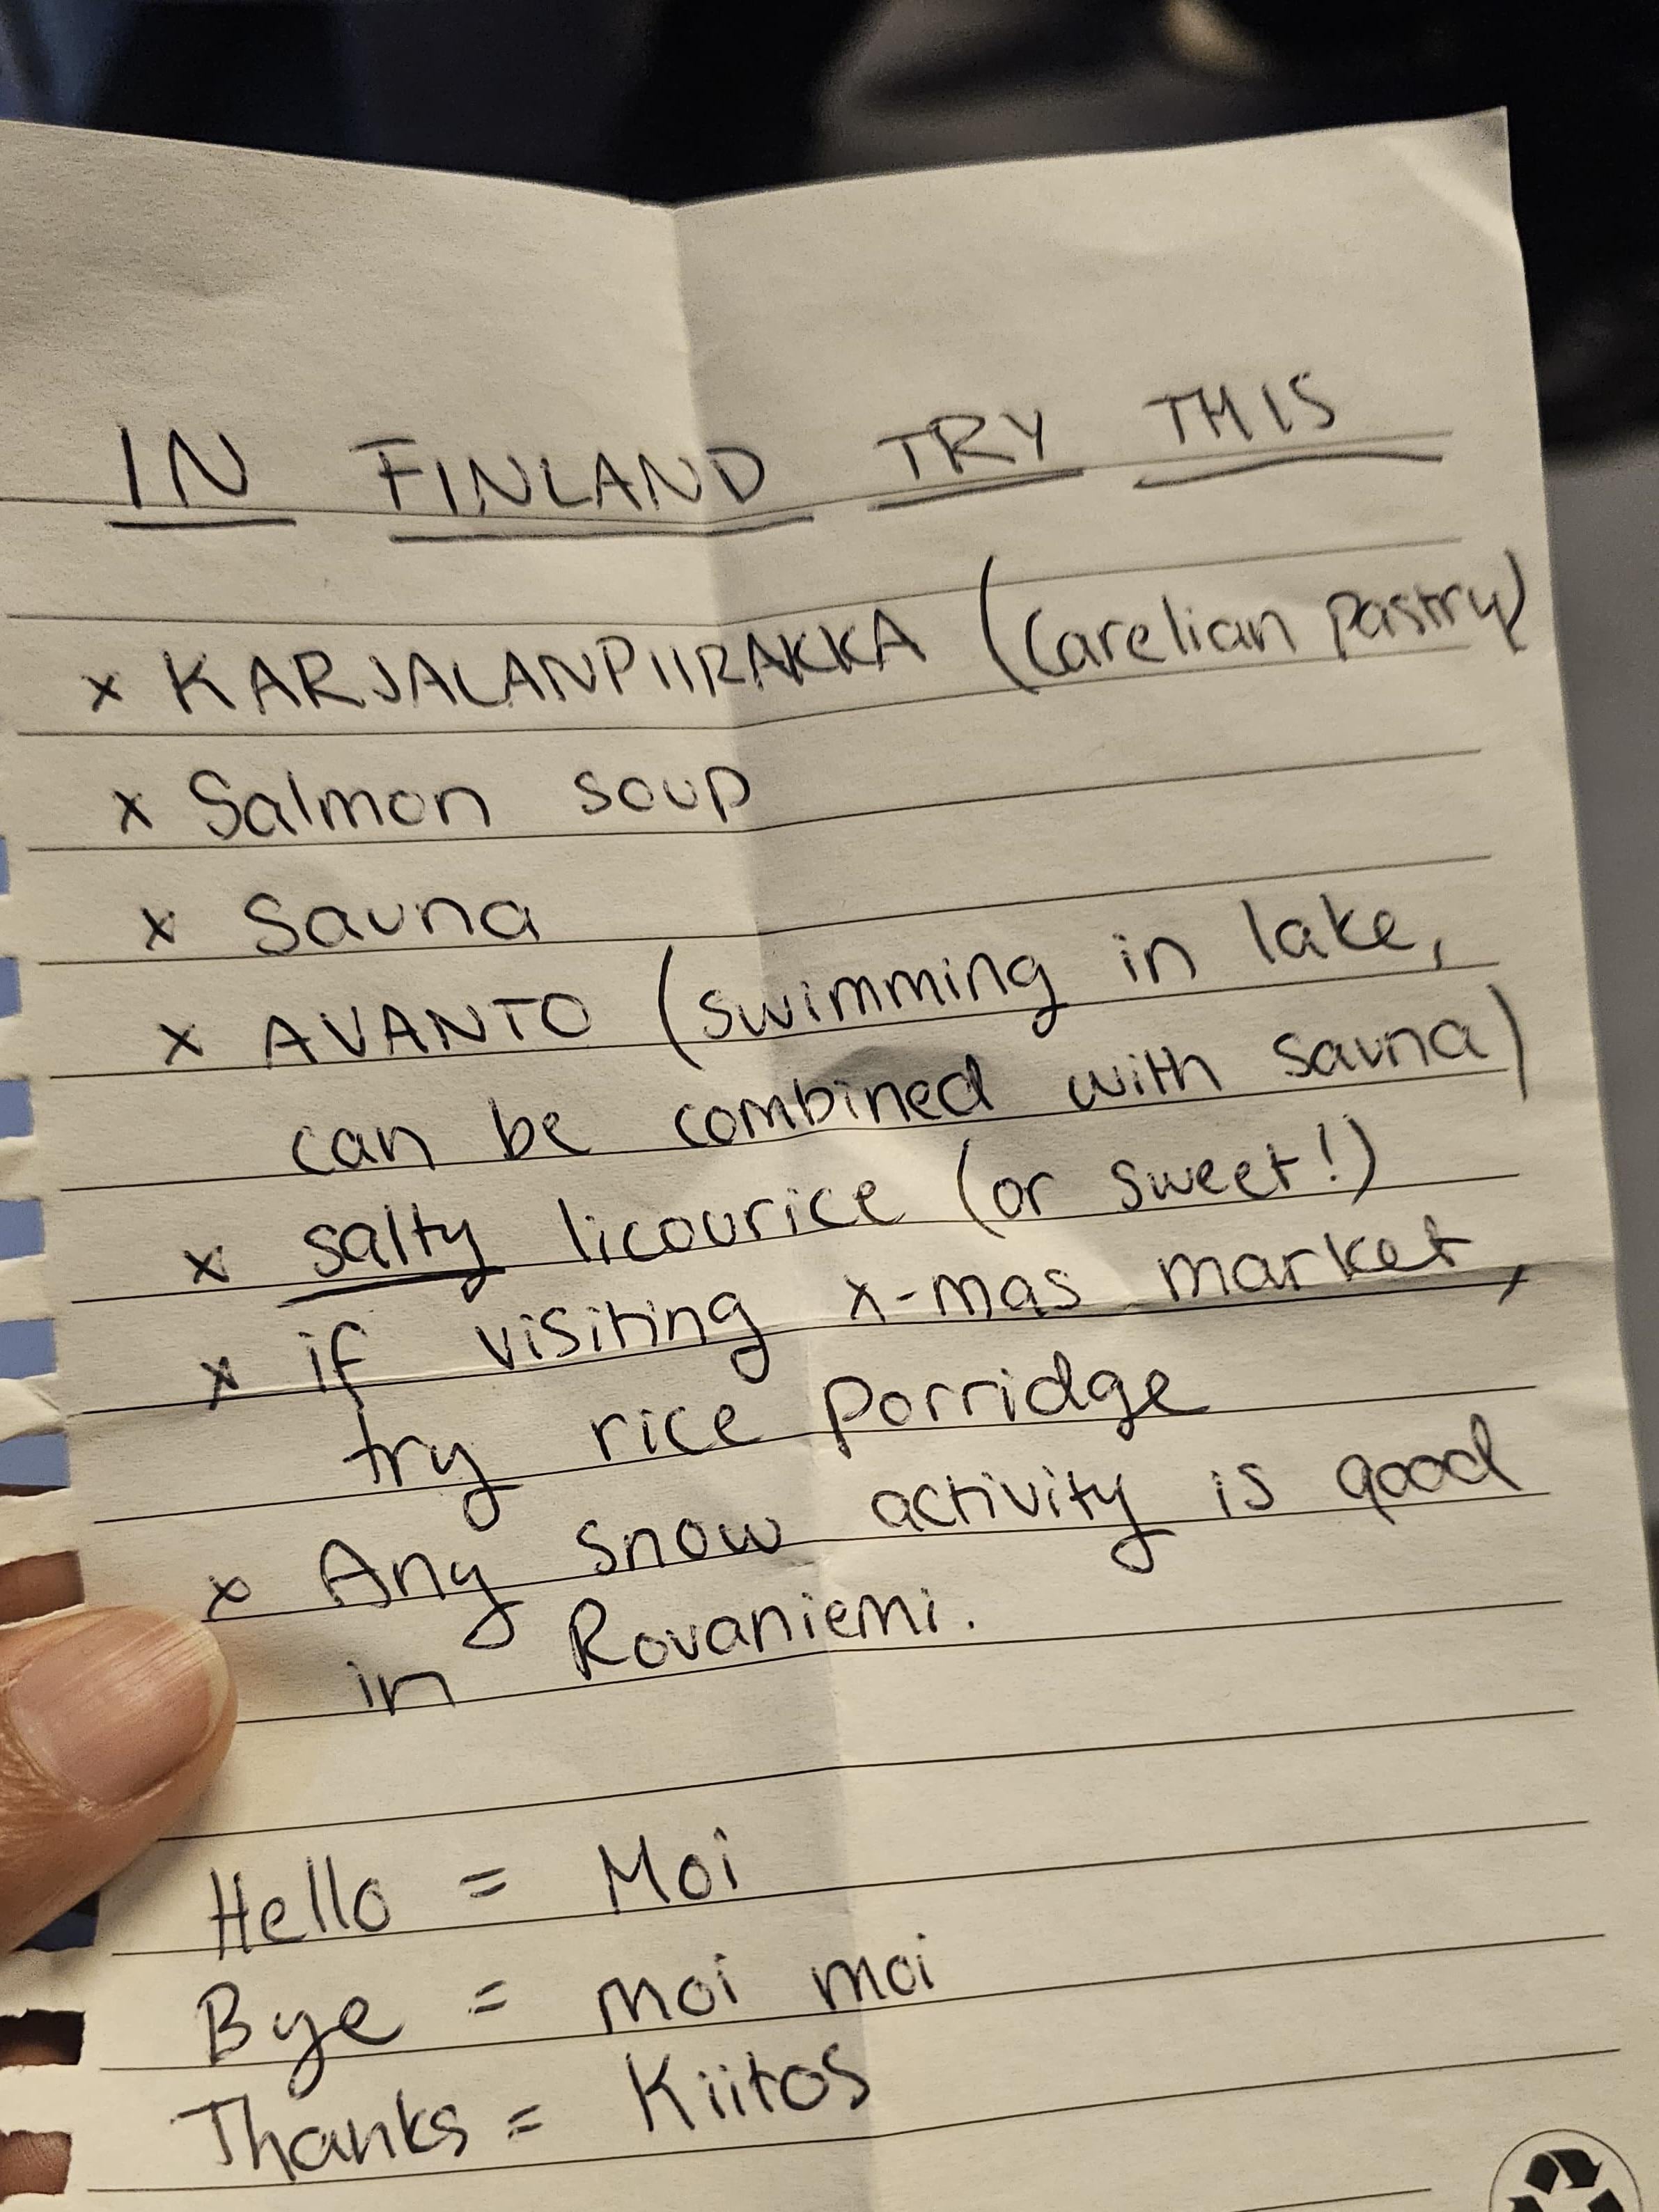 IN FINLAND TRY THIS
x KARJALANPIIRAKKA (Carelian pastry)
x Salmon soup
x Sauna
x AVANTO (swimming in lake,
can be combined with sauna)
x salty licourice (or sweet!)
x if visiting x-mas market,
try rice porridge
x Any snow activity is good
in Rovaniemi.
Hello = Moi
Bye = moi moi
Thanks = Kiitos